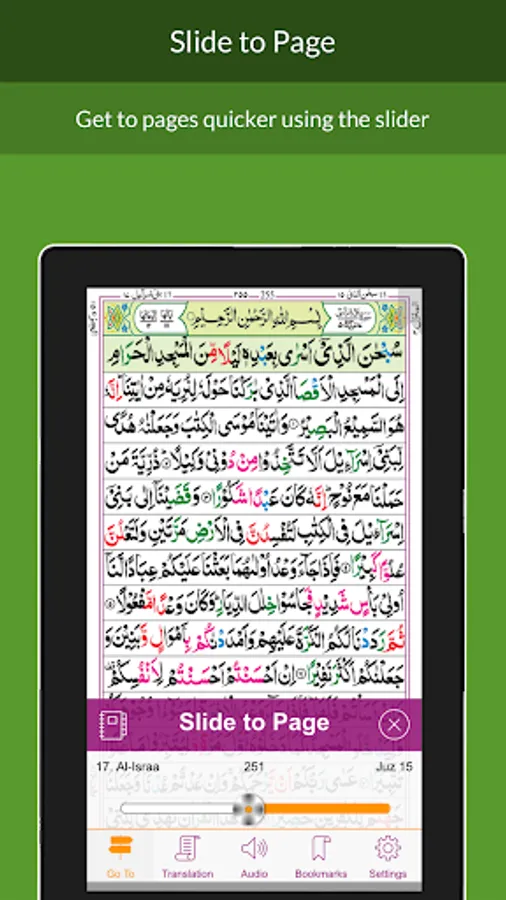 Slide to Page
Get to pages quicker using the slider
٢٥٥ 255
بِسْمِ اللهِ الرَّحْمٰنِ الرَّحِيْمِ
سُبْحٰنَ الَّذِيْۤ اَسْرٰى بِعَبْدِهٖ لَيْلًا مِّنَ الْمَسْجِدِ الْحَرَامِ
اِلَى الْمَسْجِدِ الْاَقْصَا الَّذِيْ بٰرَكْنَا حَوْلَهٗ لِنُرِيَهٗ مِنْ اٰيٰتِنَا ؕ اِنَّهٗ
هُوَ السَّمِيْعُ الْبَصِيْرُ وَاٰتَيْنَا مُوْسَى الْكِتٰبَ وَجَعَلْنٰهُ هُدًى
لِّبَنِيْۤ اِسْرَآءِيْلَ اَلَّا تَتَّخِذُوْا مِنْ دُوْنِيْ وَكِيْلًا ذُرِّيَّةَ مَنْ
حَمَلْنَا مَعَ نُوْحٍ ؕ اِنَّهٗ كَانَ عَبْدًا شَكُوْرًا وَقَضَيْنَاۤ اِلٰى بَنِيْۤ
اِسْرَآءِيْلَ فِي الْكِتٰبِ لَتُفْسِدُنَّ فِي الْاَرْضِ مَرَّتَيْنِ وَلَتَعْلُنَّ
عُلُوًّا كَبِيْرًا فَاِذَا جَآءَ وَعْدُ اُوْلٰىهُمَا بَعَثْنَا عَلَيْكُمْ عِبَادًا لَّنَاۤ
اُولِيْ بَاْسٍ شَدِيْدٍ فَجَاسُوْا خِلٰلَ الدِّيَارِ ؕ وَكَانَ وَعْدًا مَّفْعُوْلًا
ثُمَّ رَدَدْنَا لَكُمُ الْكَرَّةَ عَلَيْهِمْ وَاَمْدَدْنٰكُمْ بِاَمْوَالٍ وَّبَنِيْنَ وَ
جَعَلْنٰكُمْ اَكْثَرَ نَفِيْرًا اِنْ اَحْسَنْتُمْ اَحْسَنْتُمْ لِاَنْفُسِكُمْ
Slide to Page
17. Al-Israa 251 Juz 15
Go To Translation Audio Bookmarks Settings